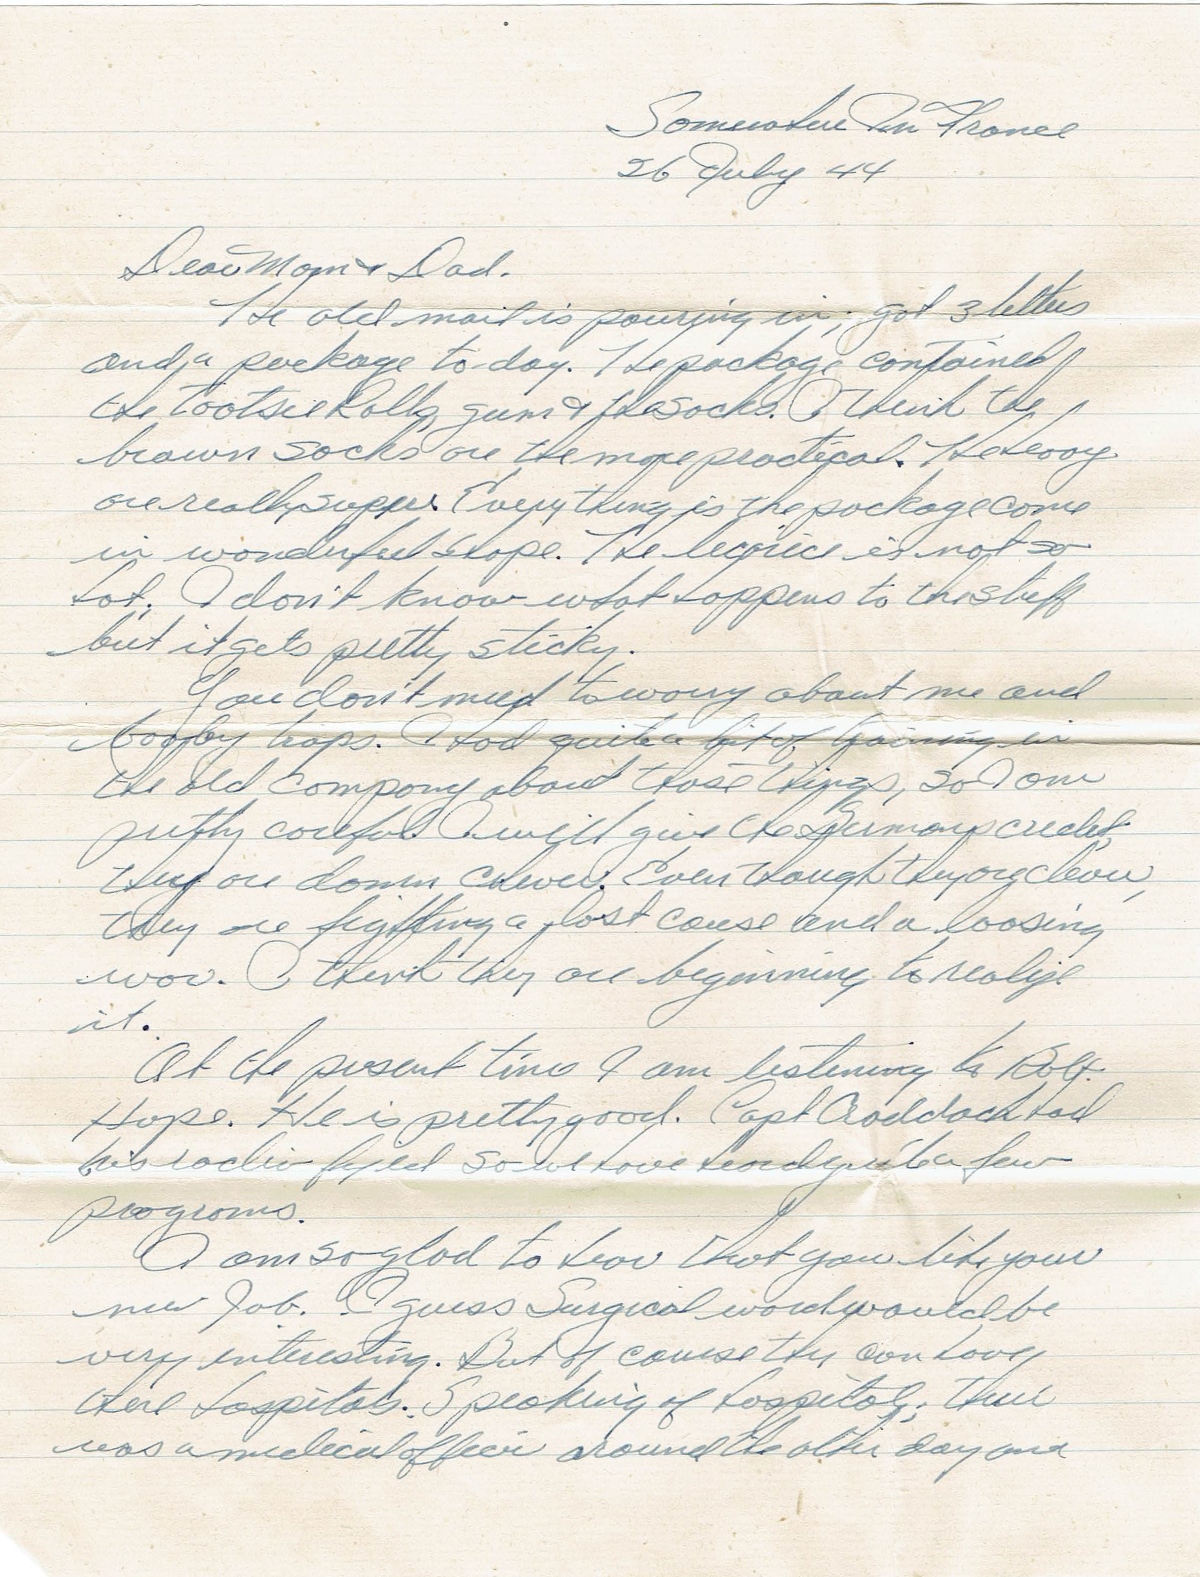 Somewhere In France
26 July 44
Dear Mom & Dad.
The old mail is pouring in; got 3 letters
and a package to-day. The package contained
the Tootsie Rolls, gum & the socks. I think the
brown socks are the more practical. The heavy
are really super. Everything is the package come
in wonderful shape. The licorice is not so
hot. I don't know what happens to the stuff
but it gets pretty sticky.
You don't need to worry about me and
booby traps. I had quite a bit of training in
the old company about those things, so I am
pretty careful. I will give the Germans credit,
they are damn clever. Even though they are clever,
they are fighting a lost cause and a loosing
war. I think they are beginning to realize
it.
At the present time I am listening to Bob
Hope. He is pretty good. Capt Craddock had
his radio fixed so we have heard quite a few
programs.
I am so glad to hear that you like your
new Job. I guess Surgical ward would be
very interesting. But of course they can have
there hospitals. Speaking of hospitals, there
was a medical officer around the other day and